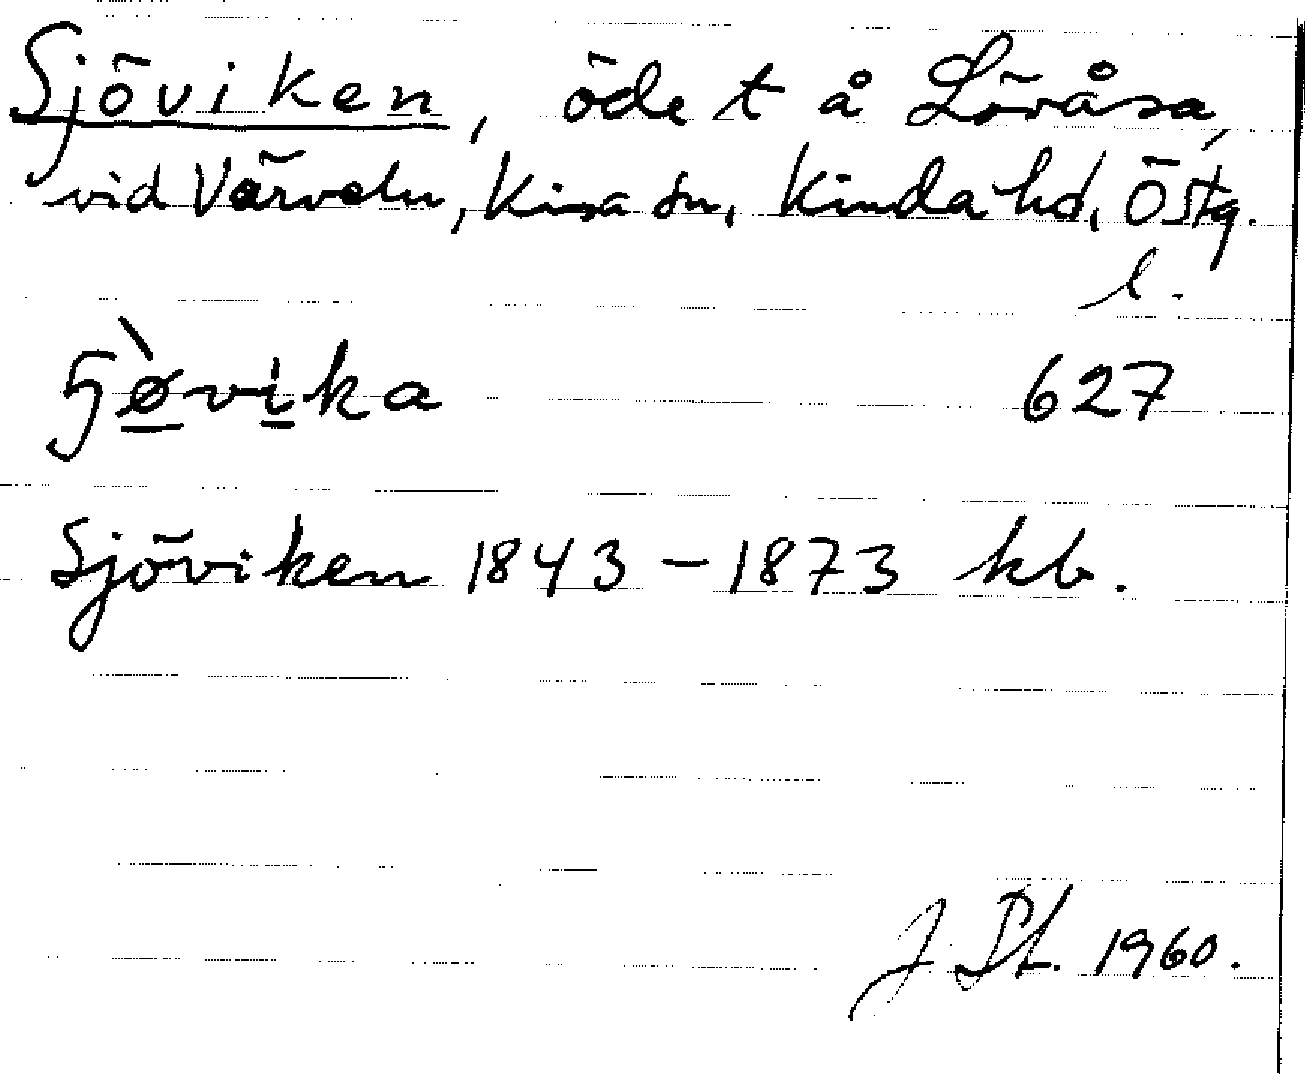 Sjöviken, öde t å Lövåsa,
vid Värveln, Kisa sn, Kinda hd, Östg.
l.
627
Sjöviken 1843-1873 kb.
1960.